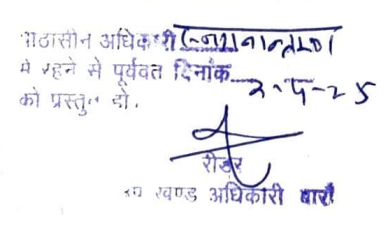 पीठासीन अधिकारी
में रहने से पूर्ववत दिनांक
को प्रस्तुत हो.
रीडर
उप खण्ड अधिकारी बारां